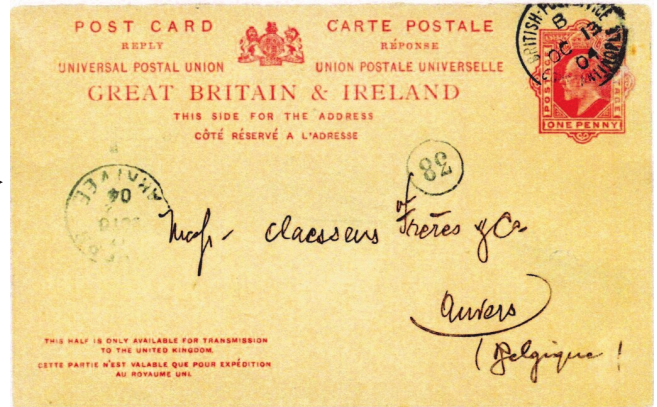 POST CARD
CARTE POSTALE
REPLY
RÉPONSE
UNIVERSAL POSTAL UNION
UNION POSTALE UNIVERSELLE
GREAT BRITAIN & IRELAND
THIS SIDE FOR THE ADDRESS
CÔTÉ RÉSERVÉ A L'ADRESSE
BRITISH POST OFFICE
B
OC 13
04
POSTAGE
ONE PENNY
38
ARRIVÉE
04
Claessens Frères & Co
Anvers
(Belgique)
THIS HALF IS ONLY AVAILABLE FOR TRANSMISSION
TO THE UNITED KINGDOM.
CETTE PARTIE N'EST VALABLE QUE POUR EXPÉDITION
AU ROYAUME UNI.